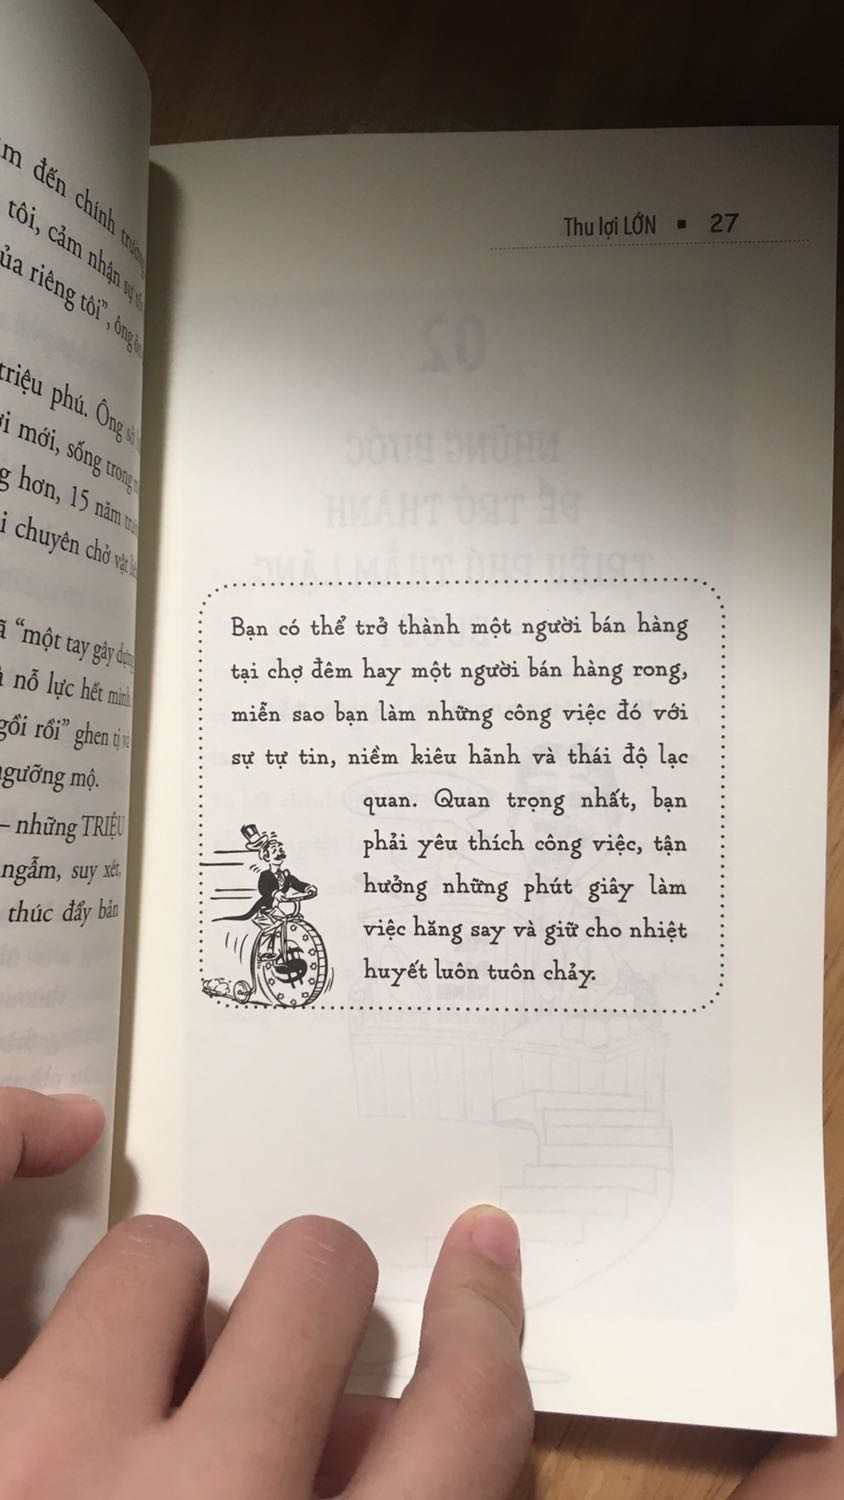 đến chính
tôi, cảm nhận sự
riêng tôi”, ông
triệu phú. Ông
mới, sống trong
hơn, 15 năm
chuyên chở vật
“một tay gây dựng
nỗ lực hết mình
rồi” ghen tị và
ngưỡng mộ.
– những TRIỆU
ngẫm, suy xét,
thúc đẩy bản
Thu lợi LỚN ▪ 27
02
NHỮNG BƯỚC
ĐỂ TRỞ THÀNH
TRIỆU PHÚ THẦM LẶNG
Bạn có thể trở thành một người bán hàng
tại chợ đêm hay một người bán hàng rong,
miễn sao bạn làm những công việc đó với
sự tự tin, niềm kiêu hãnh và thái độ lạc
quan. Quan trọng nhất, bạn
phải yêu thích công việc, tận
hưởng những phút giây làm
việc hăng say và giữ cho nhiệt
huyết luôn tuôn chảy.